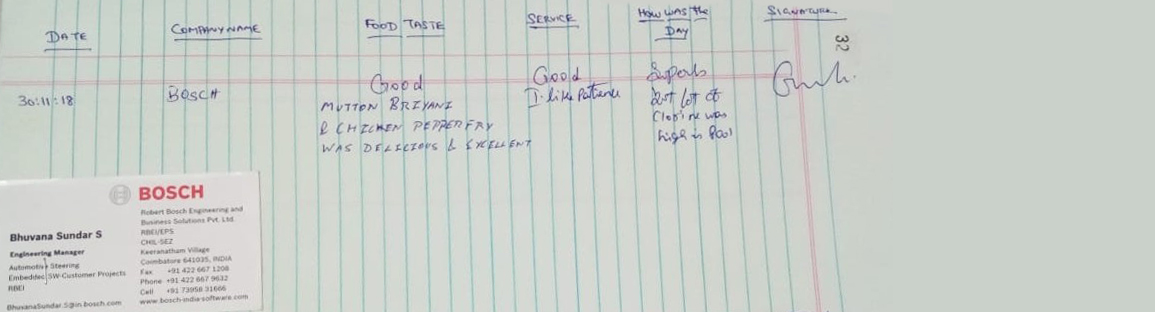 DATE
COMPANY NAME
FOOD TASTE
SERVICE
HOW WAS the
DAY
SIGNATURE
32
30:11:18
BOSCH
Good
MUTTON BRIYANI
& CHICKEN PEPPER FRY
WAS DELICIOUS & EXCELLENT
Good
I like Patience
Superb
but lot of
Clorine was
high in Pool
BOSCH
Bhuvana Sundar S
Engineering Manager
Automotive Steering
Embedded SW-Customer Projects
RBEI
BhuvanaSundar.S@in.bosch.com
Robert Bosch Engineering and
Business Solutions Pvt. Ltd.
RBEI/EPS
CHIL-SEZ
Keeranatham Village
Coimbatore 641035, INDIA
Fax +91 422 667 1208
Phone +91 422 667 9632
Cell +91 73958 31666
www.bosch-india-software.com